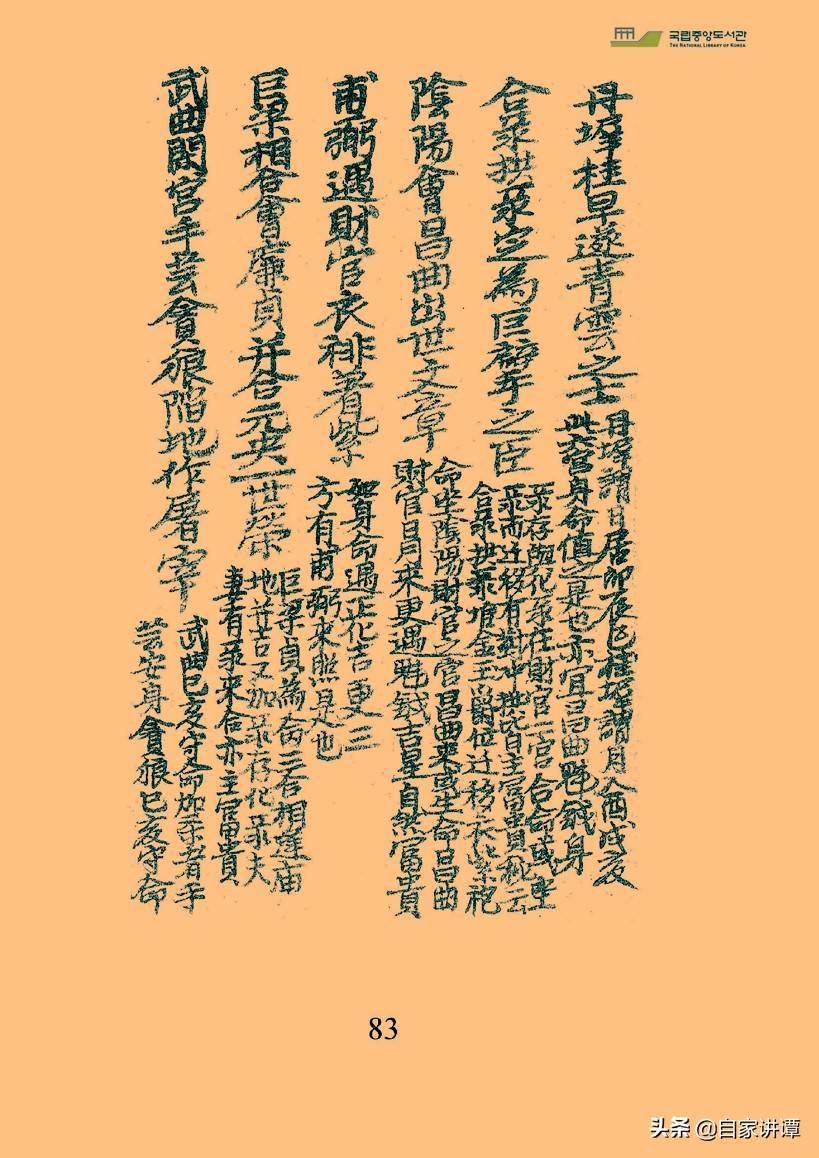 국립중앙도서관
THE NATIONAL LIBRARY OF KOREA
丹墀桂早遂青雲之士
日墀謂日居卯辰巳桂墀謂月入酉戌亥
此六宮身命值之是也亦宜昌曲魁鉞身
合录拱录定為巨擘之臣
录存化录在財官二宮合命或坐
录而迁移有對冲拱皆主富貴 云
合录拱录堆金玉爵位迁移衣紫袍
陰陽會昌曲出世文章
命坐陰陽財官二宮昌曲來 生命昌曲
財官日月來更遇魁鉞吉星自然富貴
甫弼遇財官衣緋着紫
如身命遇正化吉更三
方有甫弼來照是也
巨梁相合會廉貞并合元央一世榮
巨梁貞為命三合相逢庙
地并吉又加录存化录夫
妻有录來合亦主富貴
武曲閑宮手芸會狼陷地作屠宰
武曲巳亥守命加 者手
芸安身貪狼巳亥守命
83
头条 @自家讲谭